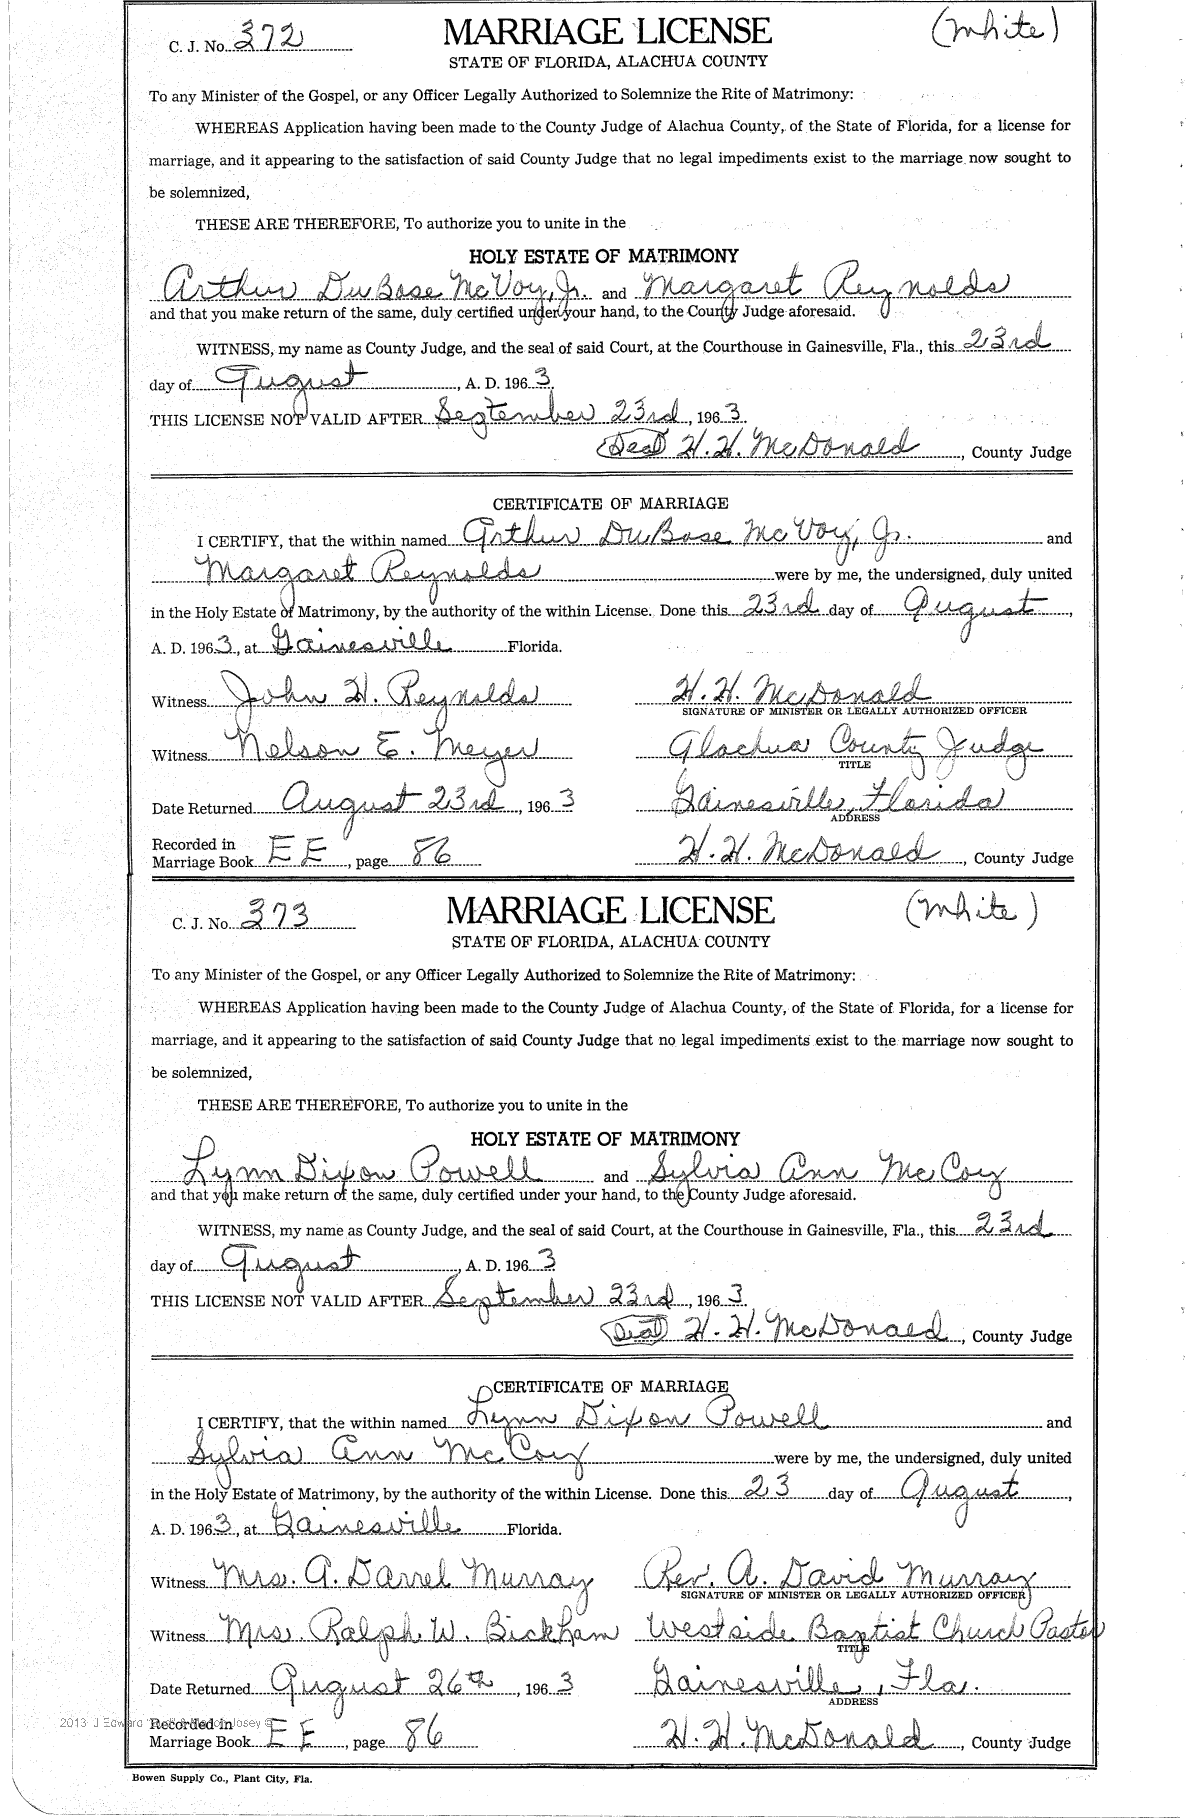 C. J. No. 372 MARRIAGE LICENSE (White)
STATE OF FLORIDA, ALACHUA COUNTY
To any Minister of the Gospel, or any Officer Legally Authorized to Solemnize the Rite of Matrimony:
WHEREAS Application having been made to the County Judge of Alachua County, of the State of Florida, for a license for
marriage, and it appearing to the satisfaction of said County Judge that no legal impediments exist to the marriage now sought to
be solemnized,
THESE ARE THEREFORE, To authorize you to unite in the
HOLY ESTATE OF MATRIMONY
Arthur DuBose McVoy, Jr. and Margaret Reynolds
and that you make return of the same, duly certified under your hand, to the County Judge aforesaid.
WITNESS, my name as County Judge, and the seal of said Court, at the Courthouse in Gainesville, Fla., this 23rd
day of August, A. D. 1963.
THIS LICENSE NOT VALID AFTER September 23rd, 1963.
(Seal) H. H. McDonald, County Judge
CERTIFICATE OF MARRIAGE
I CERTIFY, that the within named Arthur DuBose McVoy, Jr. and
Margaret Reynolds were by me, the undersigned, duly united
in the Holy Estate of Matrimony, by the authority of the within License. Done this 23rd day of August,
A. D. 1963, at Gainesville Florida.
Witness John H. Reynolds H. H. McDonald
SIGNATURE OF MINISTER OR LEGALLY AUTHORIZED OFFICER
Witness Nelson E. Meyer Alachua County Judge
TITLE
Date Returned August 23rd, 1963 Gainesville, Florida
ADDRESS
Recorded in
Marriage Book EE, page 86 H. H. McDonald, County Judge
C. J. No. 373 MARRIAGE LICENSE (White)
STATE OF FLORIDA, ALACHUA COUNTY
To any Minister of the Gospel, or any Officer Legally Authorized to Solemnize the Rite of Matrimony:
WHEREAS Application having been made to the County Judge of Alachua County, of the State of Florida, for a license for
marriage, and it appearing to the satisfaction of said County Judge that no legal impediments exist to the marriage now sought to
be solemnized,
THESE ARE THEREFORE, To authorize you to unite in the
HOLY ESTATE OF MATRIMONY
Lynn Dixon Powell and Sylvia Ann McCoy
and that you make return of the same, duly certified under your hand, to the County Judge aforesaid.
WITNESS, my name as County Judge, and the seal of said Court, at the Courthouse in Gainesville, Fla., this 23rd
day of August, A. D. 1963
THIS LICENSE NOT VALID AFTER September 23rd, 1963.
(Seal) H. H. McDonald, County Judge
CERTIFICATE OF MARRIAGE
I CERTIFY, that the within named Lynn Dixon Powell and
Sylvia Ann McCoy were by me, the undersigned, duly united
in the Holy Estate of Matrimony, by the authority of the within License. Done this 23 day of August,
A. D. 1963, at Gainesville Florida.
Witness Mrs. A. Darrel Murray Rev. A. David Murray
SIGNATURE OF MINISTER OR LEGALLY AUTHORIZED OFFICER
Witness Mrs. Ralph W. Bickham Westside Baptist Church Pastor
TITLE
Date Returned August 26th, 1963 Gainesville, Fla.
ADDRESS
2013 J Edward Josey ©
Recorded in
Marriage Book EE, page 86 H. H. McDonald, County Judge
Bowen Supply Co., Plant City, Fla.